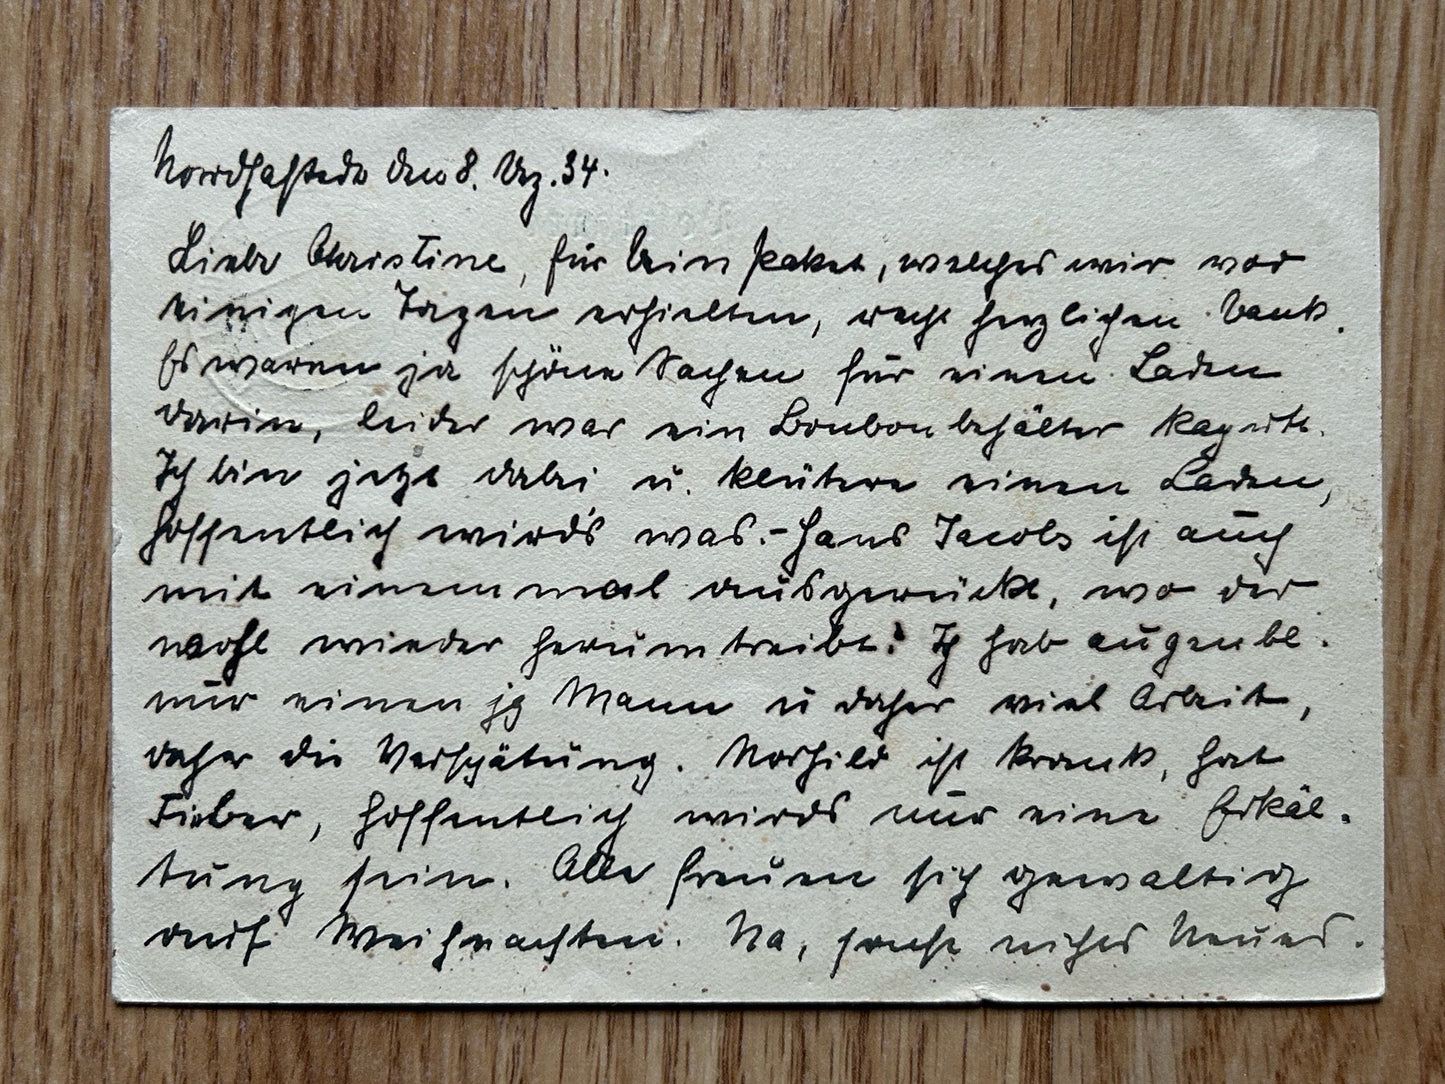 Nordhastedt den 8. Dez. 34.
Liebe Christine, für Dein Paket, welches wir vor
einigen Tagen erhielten, recht herzlichen Dank.
Es waren ja schöne Sachen für einen Laden
darin, leider war ein Bonbonbehälter kaputt.
Ich bin jetzt dabei u. klütere einen Laden,
hoffentlich wird's was.- Hans Jacobs ist auch
mit einemmal ausgerückt, wo der
wohl wieder herumtreibt! Ich hab augenbl.
nur einen jg Mann u daher viel Arbeit,
daher die Verspätung. ist krank, hat
Fieber, hoffentlich wirds nur eine Erkäl-
tung sein. Alle freuen sich gewaltig
auf Weihnachten. Na, sonst nichts Neues.